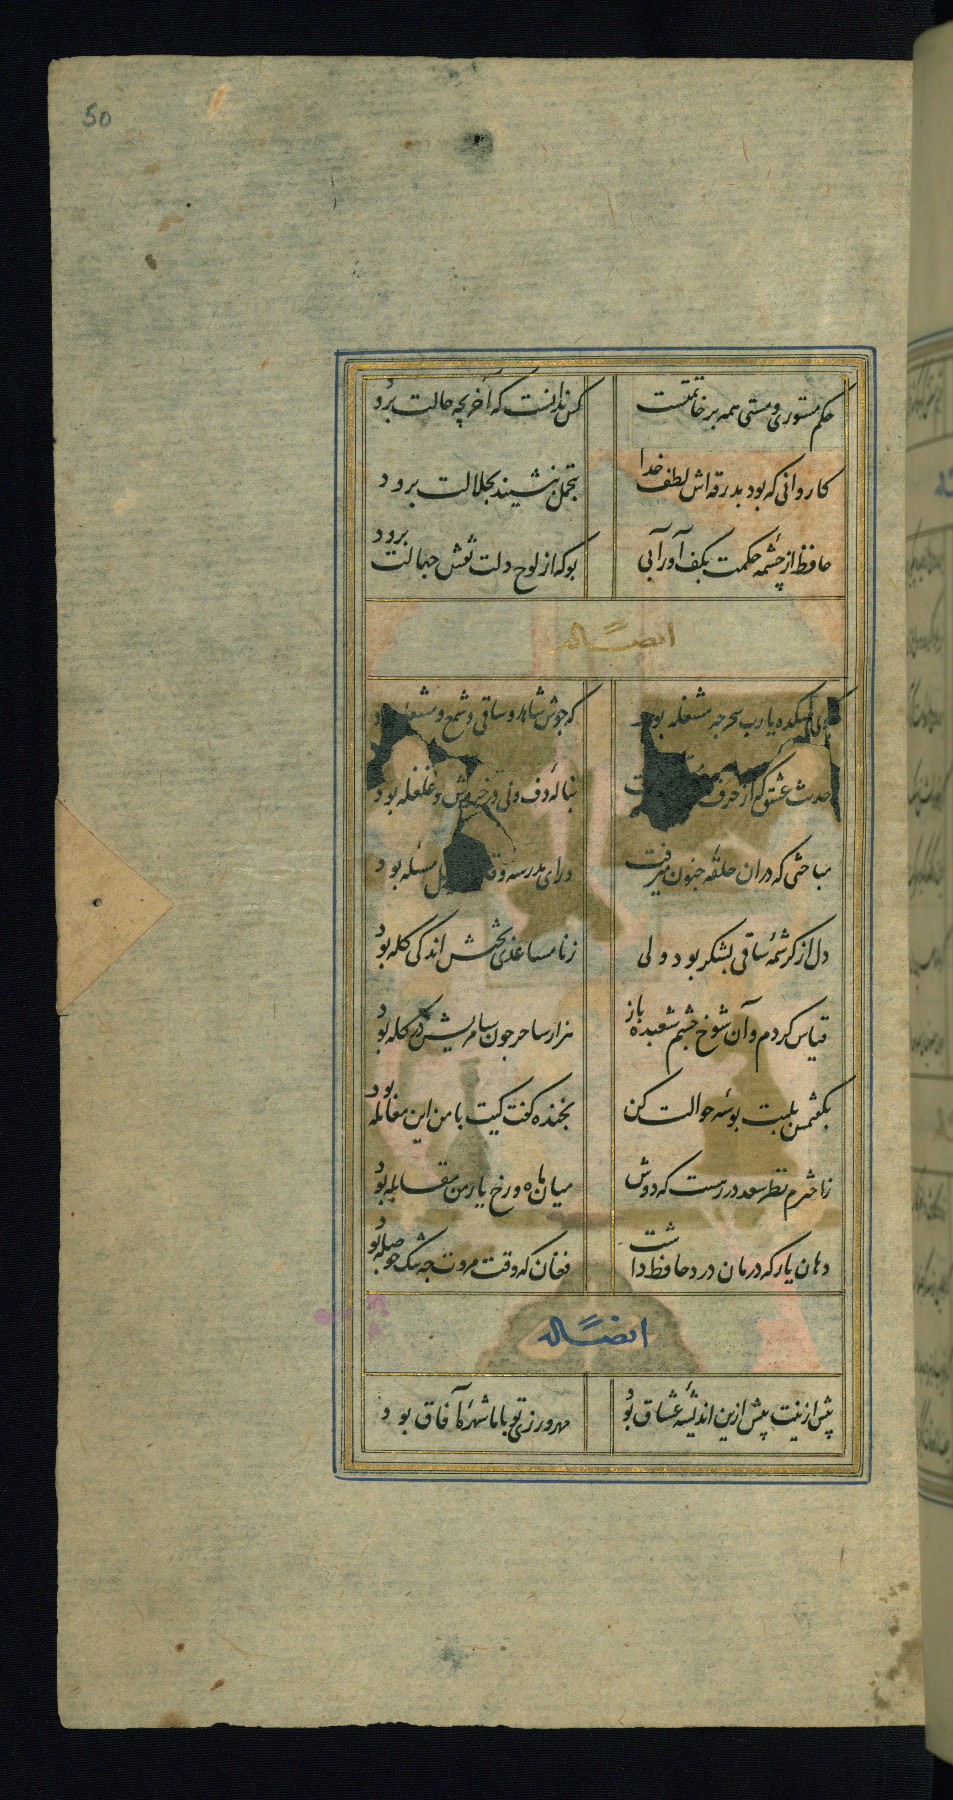 50
حکم مستوری و مستی همه بر خاتمتست
کس ندانست که آخر بچه حالت برود
کاروانی که بود بدرقه اش لطف خدا
بتجمل بنشیند بجلالت برود
حافظ از چشمه حکمت بکف آور آبی
بوکه از لوح دلت نقش جهالت برود
ایضاً له
میکده یا رب سحر چه مشغله بود
که جوش شاهد و ساقی و شمع و مشعله
حدیث عشق که از حرف
بنالهٔ دف و نی در خروش و غلغله بود
مباحثی که در ان حلقهٔ جنون میرفت
ورای مدرسه و مسئله بود
دل از کرشمهٔ ساقی بشکر بود ولی
ز نامساعدی بختش اندکی کله بود
قیاس کردم و آن شوخ چشم شعبده باز
هزار ساحر چون سامریش در کله بود
بکفتمش بلبت بوسهٔ حوالت کن
بخنده کفت کیت با من این معامله بود
ز اخترم نظر سعد در رهست که دوش
میان ماه و رخ یار من مقابله بود
دهان یار که درمان درد حافظ داشت
فغان که وقت مروت چه تنک حوصله بود
ایضاً له
پیش ازینت بیش ازین اندیشهٔ عشاق بود
مهرورزی تو با ما شهرهٔ آفاق بود